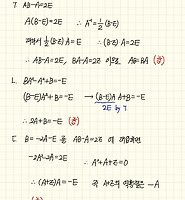 ㄱ. AB-A=2E
A(B-E)=2E ∴ A⁻¹=½(B-E)
따라서 ½(B-E)A=E ∴ (B-E)A=2E
∴ AB-A=2E, BA-A=2E 이므로 AB=BA (참)
ㄴ. BA²-A²+B=-E
(B-E)A²+B=-E → (B-E)A A+B=-E
2E by ㄱ
∴ 2A+B=-E (참)
ㄷ. B=-2A-E 를 AB-A=2E 에
-2A²-2A=2E ∴ A²+A+E=0
∴ (A+E)A=-E 즉 A+E의 역행렬은 -A